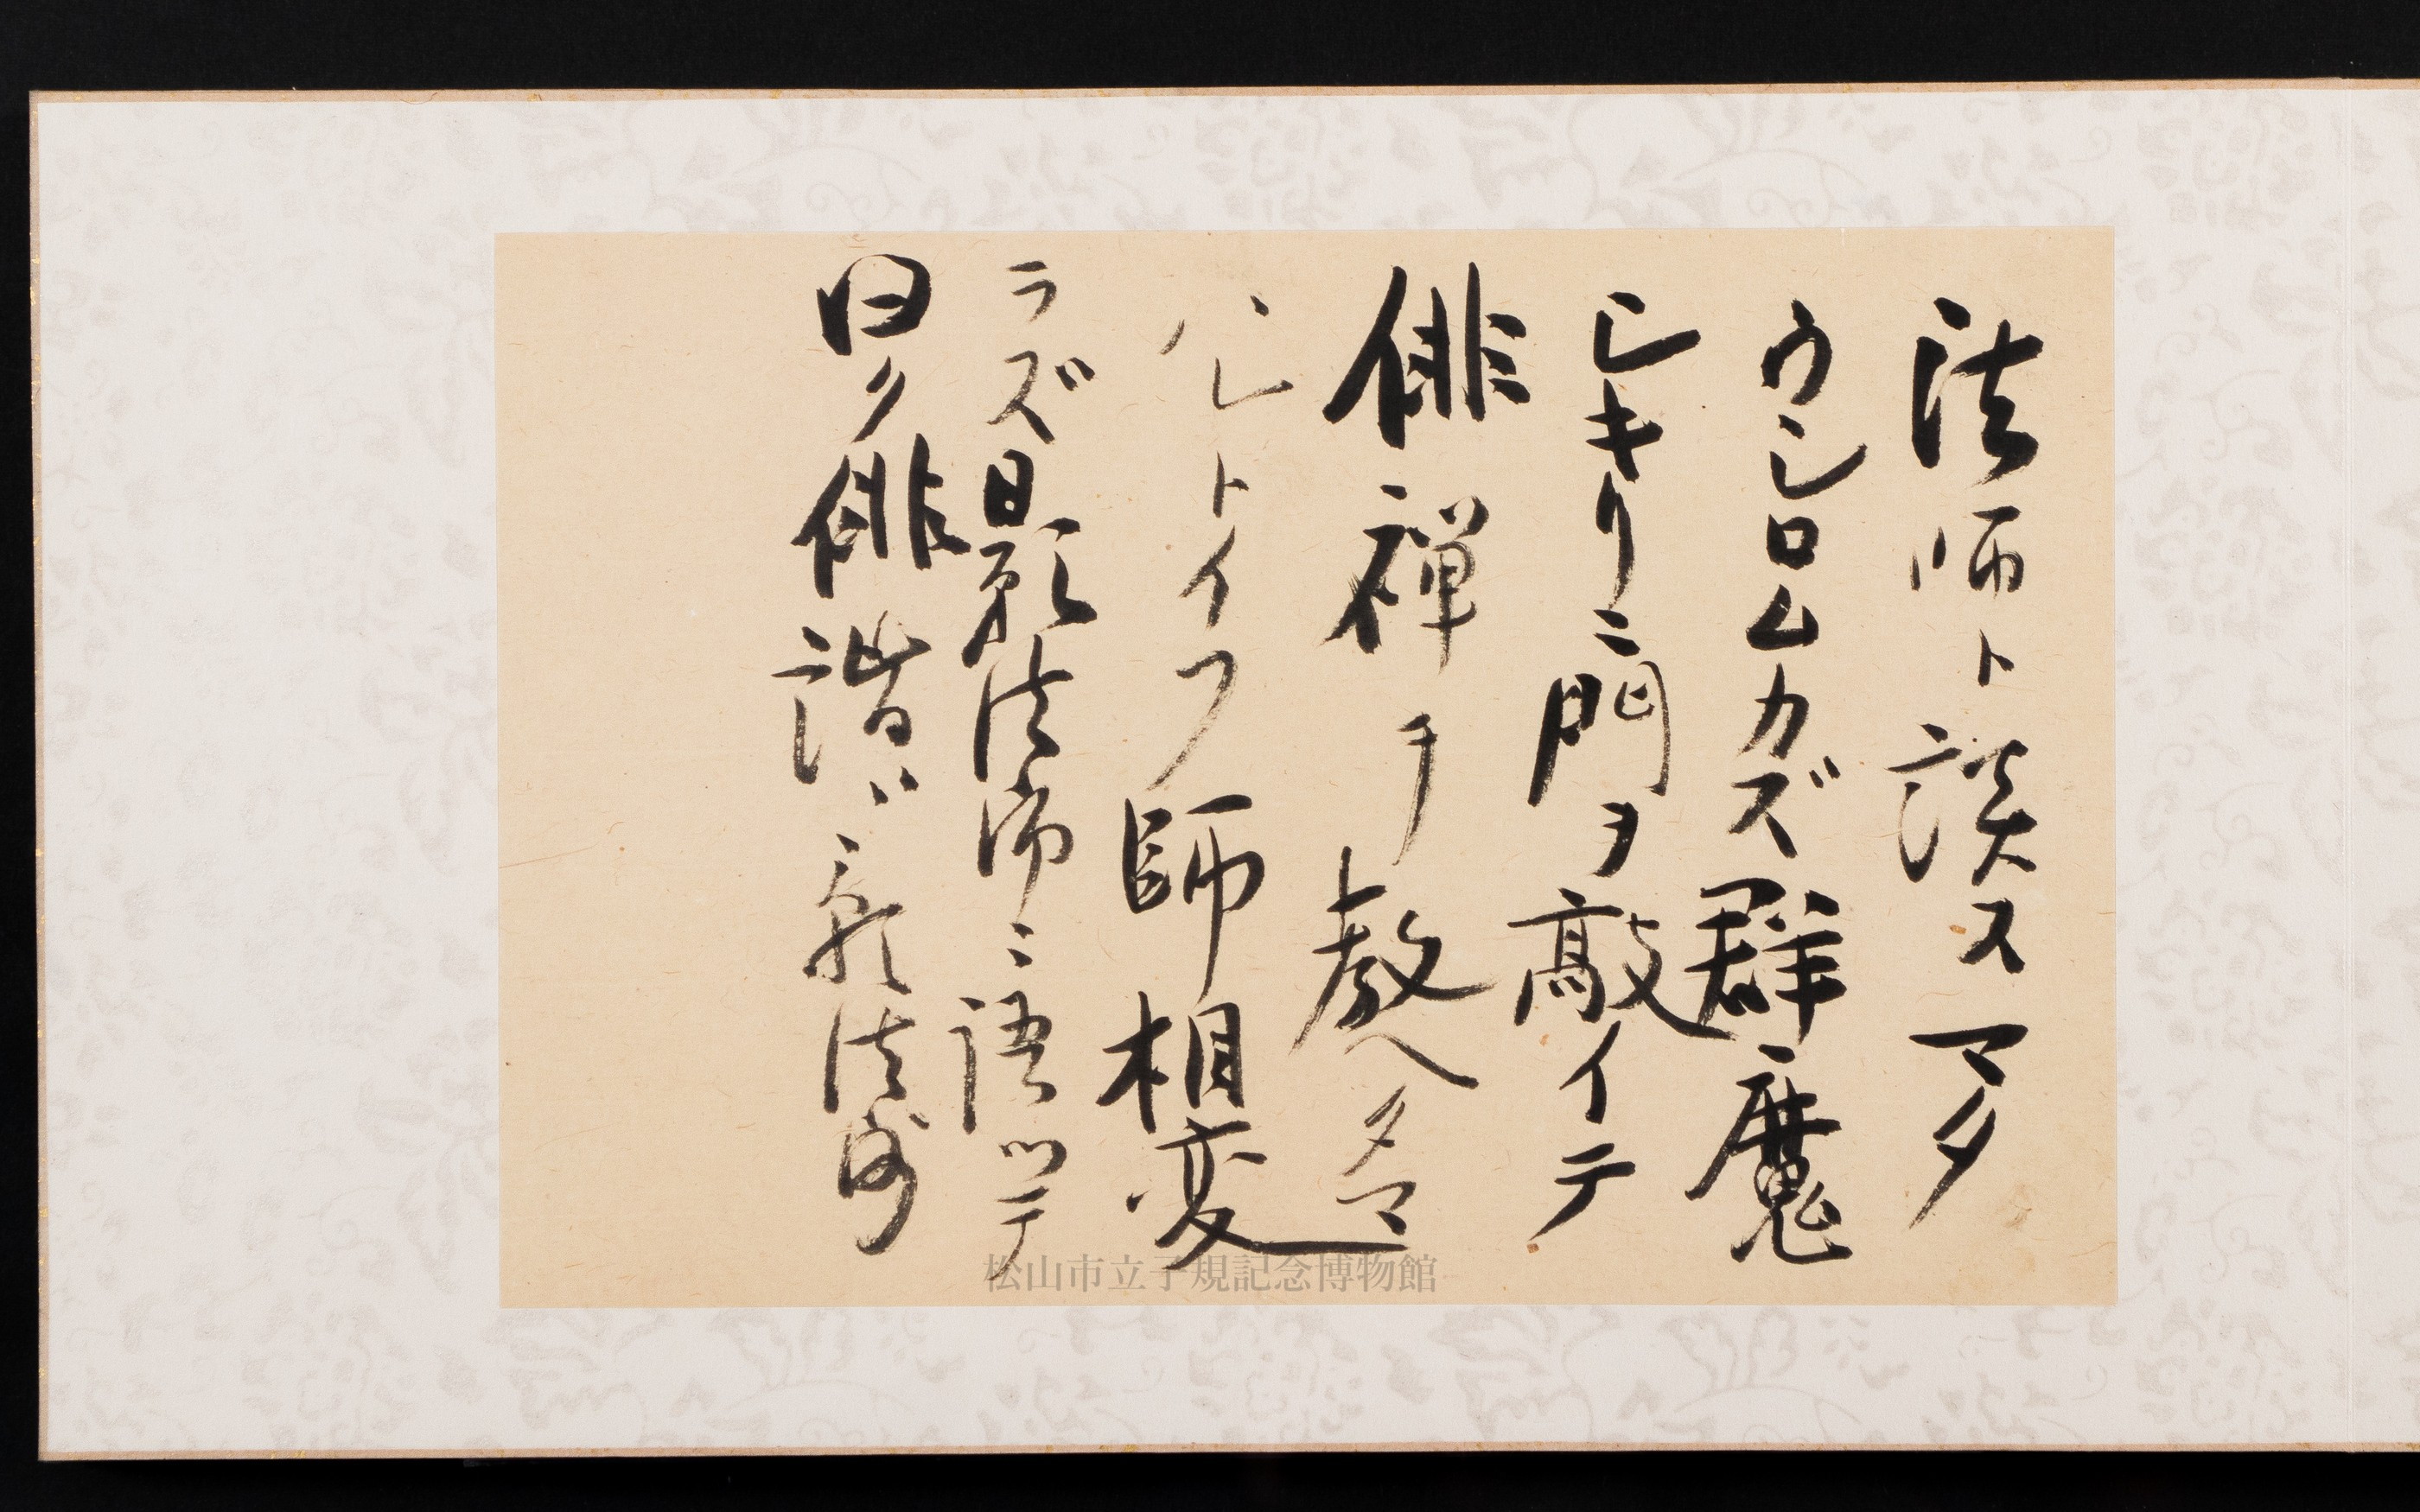 法師ト談ス マタ
ウシロムカズ群魔
シキリニ門ヲ敲イテ
俳禅ヲ教ヘタマ
ハレトイフ師相変
ラズ影法師ニ語ッテ
曰ク俳諧ハ影法師
松山市立子規記念博物館